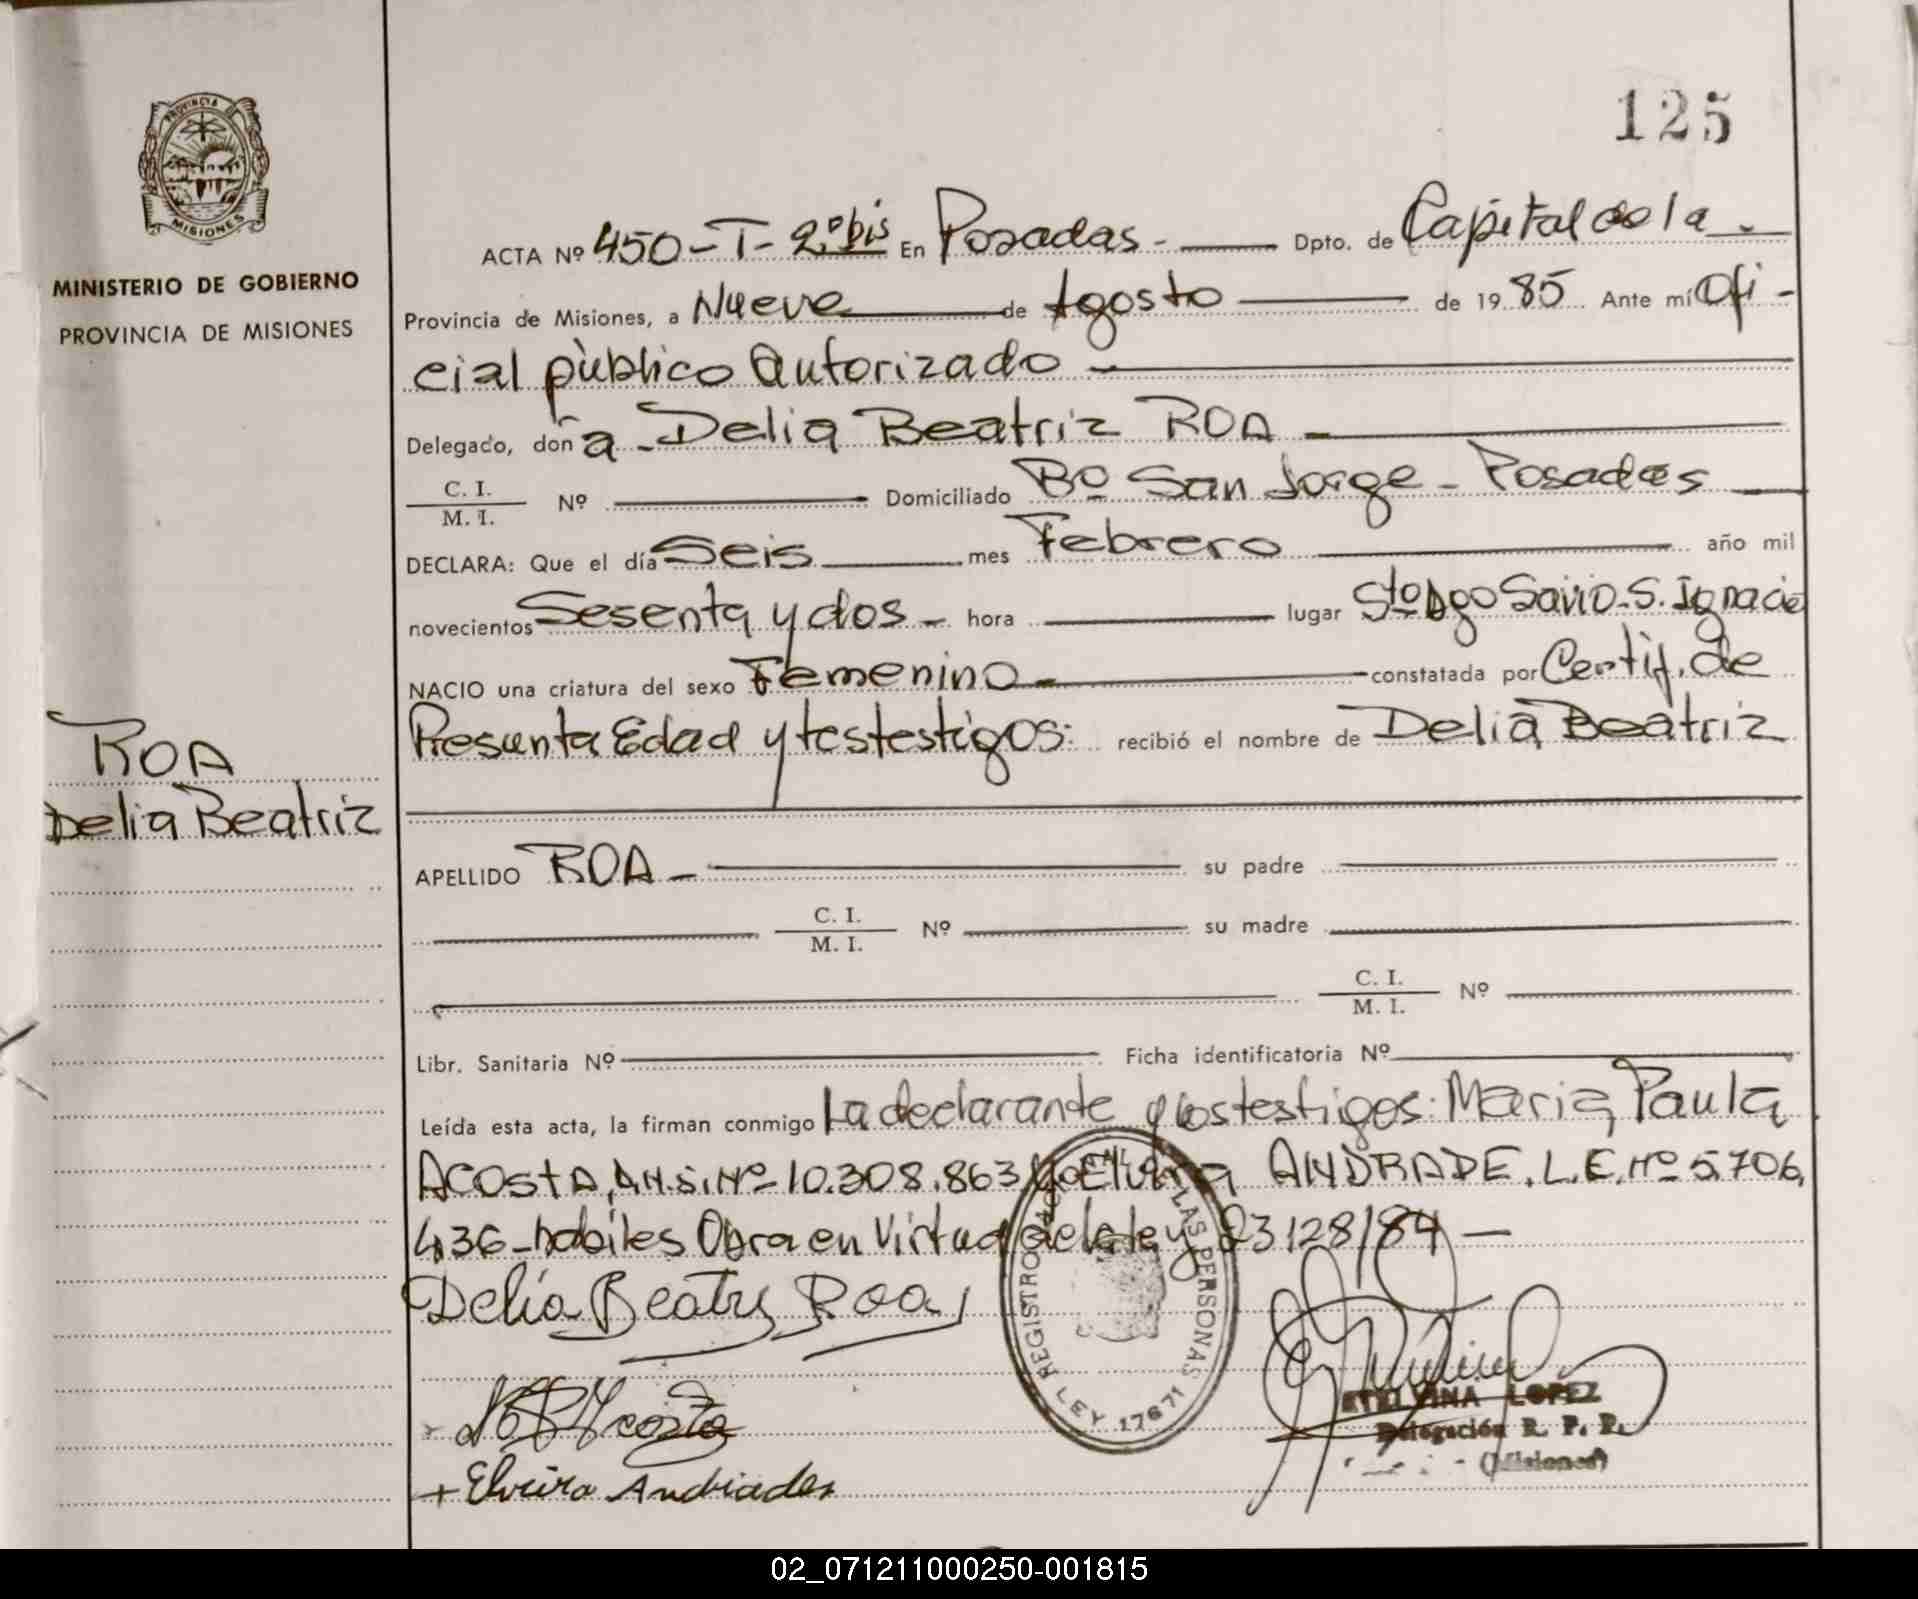 125
PROVINCIA DE
MISIONES
MINISTERIO DE GOBIERNO
PROVINCIA DE MISIONES
ROA
Delia Beatriz
ACTA Nº 450-T-2º bis En Posadas - Dpto. de Capital de la
Provincia de Misiones, a Nueve de Agosto de 1985 Ante mí Ofi-
cial público Autorizado
Delegado, don ña Delia Beatriz ROA
C. I.
M. I. Nº Domiciliado Bº San Jorge - Posadas
DECLARA: Que el día Seis mes Febrero año mil
novecientos Sesenta y dos - hora lugar Sto Dgo Savio - S. Ignacio
NACIO una criatura del sexo Femenino constatada por Certif. de
Presunta Edad y testestigos: recibió el nombre de Delia Beatriz
APELLIDO ROA - su padre
C. I.
M. I. Nº su madre
C. I.
M. I. Nº
Libr. Sanitaria Nº Ficha identificatoria Nº
Leída esta acta, la firman conmigo La declarante y los testigos: Maria Paula
ACOSTA, Nº 10.308.863 Elvira ANDRADE. L.E. Nº 5.706,
436 - habiles Obra en Virtud de la ley 23128/84 -
Delia Beatriz Roa
Acosta
+ Elvira Andrades
REGISTRO LAS PERSONAS
LEY 17671
LOPEZ
Delegación R. P. P.
(Misiones)
02_071211000250-001815